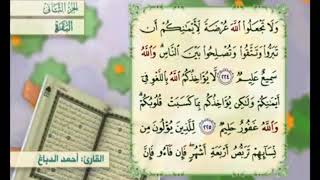 الجزء الثاني
البقرة
وَلَا تَجْعَلُوا۟ ٱللَّهَ عُرْضَةً لِّأَيْمَـٰنِكُمْ أَن
تَبَرُّوا۟ وَتَتَّقُوا۟ وَتُصْلِحُوا۟ بَيْنَ ٱلنَّاسِ وَٱللَّهُ
سَمِيعٌ عَلِيمٌ ٢٢٤ لَّا يُؤَاخِذُكُمُ ٱللَّهُ بِٱللَّغْوِ فِىٓ
أَيْمَـٰنِكُمْ وَلَـٰكِن يُؤَاخِذُكُم بِمَا كَسَبَتْ قُلُوبُكُمْ
وَٱللَّهُ غَفُورٌ حَلِيمٌ ٢٢٥ لِّلَّذِينَ يُؤْلُونَ مِن
نِّسَآئِهِمْ تَرَبُّصُ أَرْبَعَةِ أَشْهُرٍ فَإِن فَآءُو فَإِنَّ
القارئ: أحمد الدباغ